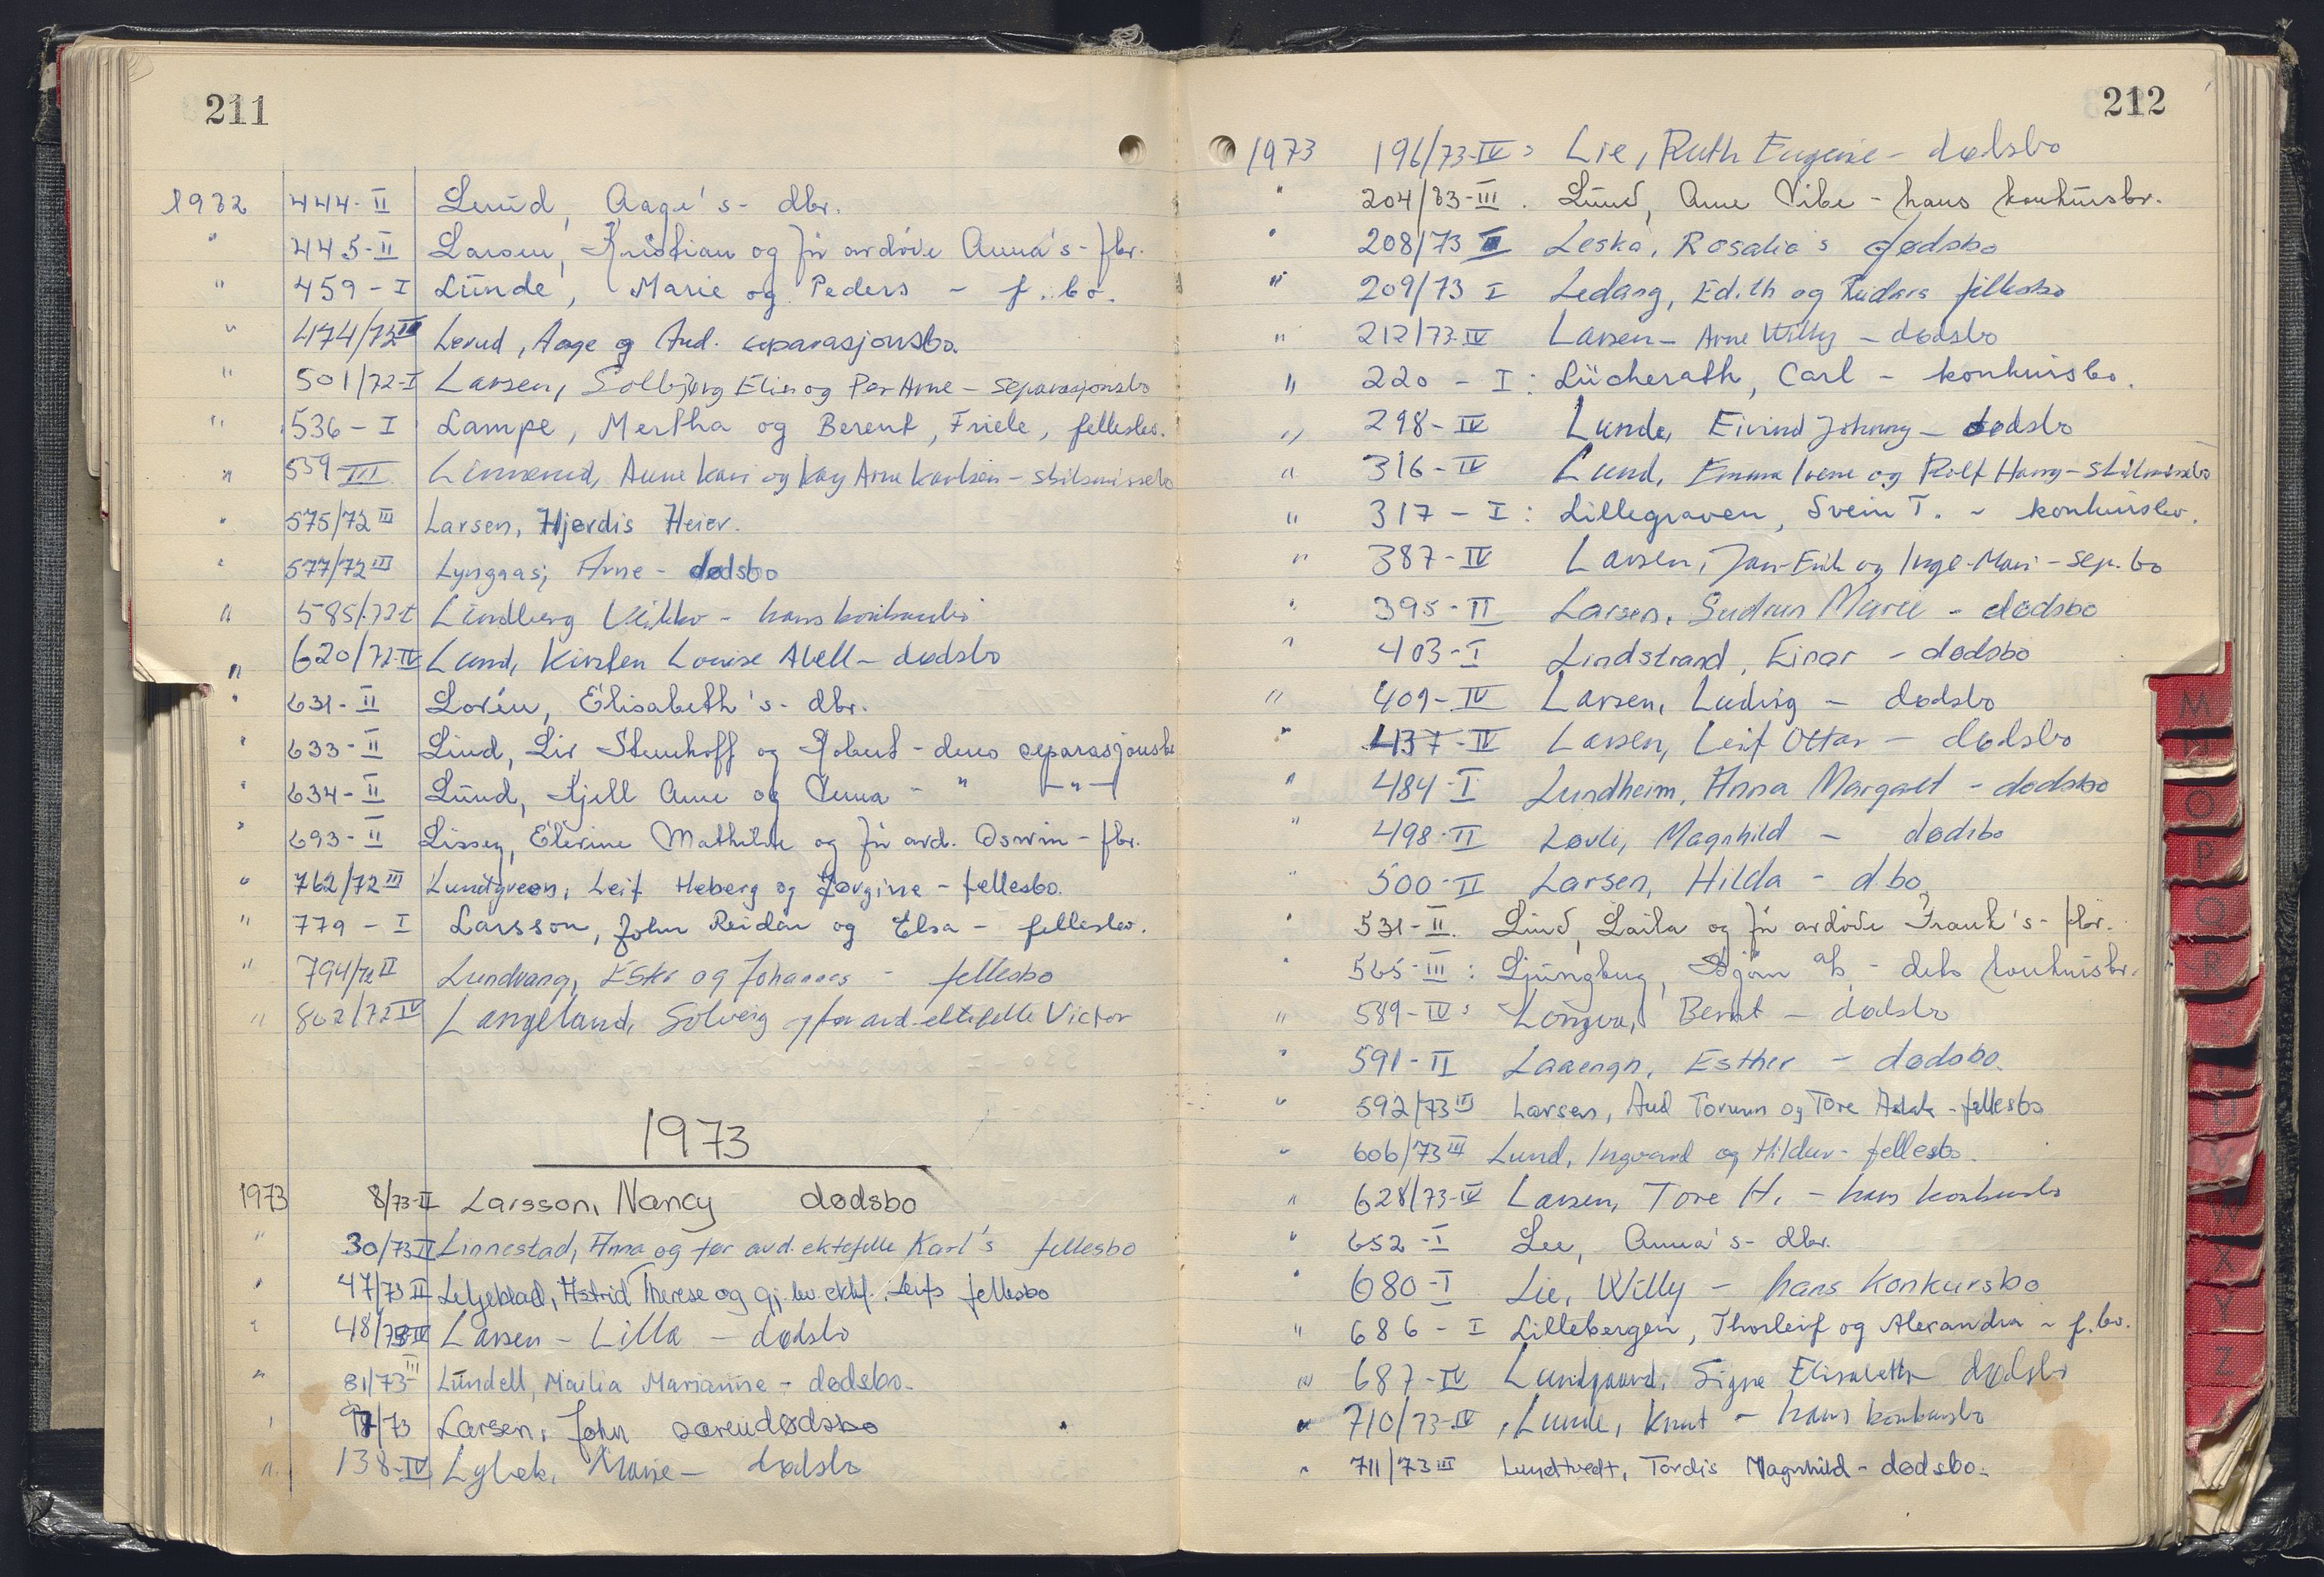 211
1972 444-II Lund, Aage's - dbr.
" 445-II Larsen, Kristian og fr avdøde Anna's - fbr.
" 459-I Lunde, Marie og Peders - f.bo.
" 474/72 III Lerud, Aage og Aud. separasjonsbo.
" 501/72-I Larsen, Solbjørg Elin og Per Arne - separasjonsbo
" 536-I Lampe, Mertha og Berent, Friele, fellesbo.
" 559 III Linnerud, Anne Kari og Kay Arne Karlsen - skilsmissebo
" 575/72 III Larsen, Hjørdis Heier.
" 577/72 III Lyngaas, Arne - dødsbo
" 585/72-I Lindberg Veikko - hans konkursbo
" 620/72-IV Lund, Kirsten Louise Abell - dødsbo
" 631-II Lorén, Elisabeth's - dbr.
" 633-II Lind, Liv Stenhoff og Robert - deres separasjonsbo
" 634-II Lund, Kjell Arne og Unna - " -"-
" 693-II Lissey, Elevine Mathilde og fr avd. Oswin - fbr.
" 762/72 III Lundgreen, Leif Heberg og Jørgine - fellesbo.
" 779-I Larsson, John Reidar og Elsa - fellesbo.
" 794/72 II Lundvang, Ester og Johannes - fellesbo
" 802/72 IV Langeland, Solveig og for avd. ektefelle Victor
1973
1973 8/73-II Larsson, Nancy dødsbo
" 30/73 II Linnestad, Anna og for avd. ektefelle Karl's fellesbo
" 47/73 II Leljeblad, Astrid Therese og gj.lev. ektef. Leifs fellesbo
" 48/73-IV Larsen - Lilla - dødsbo
" 81/73-III Lundell, Mailia Marianne - dødsbo.
" 97/73 Larsen, John særeudødsbo
" 138-IV Lybek, Marie - dødsbo
212
1973 196/73-IV: Lie, Ruth Eugenie - dødsbo
" 204/73-III. Lund, Arne Vibe - hans konkursbr.
" 208/73 II Leska, Rosalia's dødsbo
" 209/73 I Ledang, Edith og Reidars fellesbo
" 212/73-IV Larsen - Arne Willy - dødsbo
" 220-I: Lücherath, Carl - konkursbo.
" 298-IV Lunde, Eivind Johnny - dødsbo
" 316-IV Lund, Emma Irene og Rolf Harry - skilsmissebo
" 317-I: Lillegraven, Svein T. - konkursbo.
" 387-IV Larsen, Jan-Erik og Inge-Mari - sep.bo
" 395-II Larsen, Gudrun Marie - dødsbo
" 403-I Lindstrand, Einar - dødsbo
" 409-IV Larsen, Ludvig - dødsbo
" 437-IV Larsen, Leif Ottar - dødsbo
" 484-I Lundheim, Anna Margaret - dødsbo
" 498-II Løvli, Magnhild - dødsbo
" 500-II Larsen, Hilda - d.bo
" 531-II. Lind, Laila og fr avdøde Frank's - fbr.
" 565-III: Ljungberg, Bjørn A/S - dets konkursbr.
" 589-IV: Longva, Bernt - dødsbo
" 591-II Laaengn, Esther - dødsbo.
" 592/73 III Larsen, Aud Torunn og Tore Aslak - fellesbo
" 606/73 III Lund, Ingvard og Hildur - fellesbo.
" 628/73-IV Larsen, Tore H. - hans konkursbo
" 652-I Lee, Anna's - dbr.
" 680-I Lie, Willy - hans konkursbo
" 686-I Lillebergen, Thorleif og Alexandra - f.bo.
" 687-IV Lundgaard, Signe Elisabeth dødsbo
" 710/73-IV, Lunde, Knut - hans konkursbo
" 711/73 III Lundtvedt, Tordis Magnhild - dødsbo.
M
O
P
Q
R
U
V
W
X
Y
Z